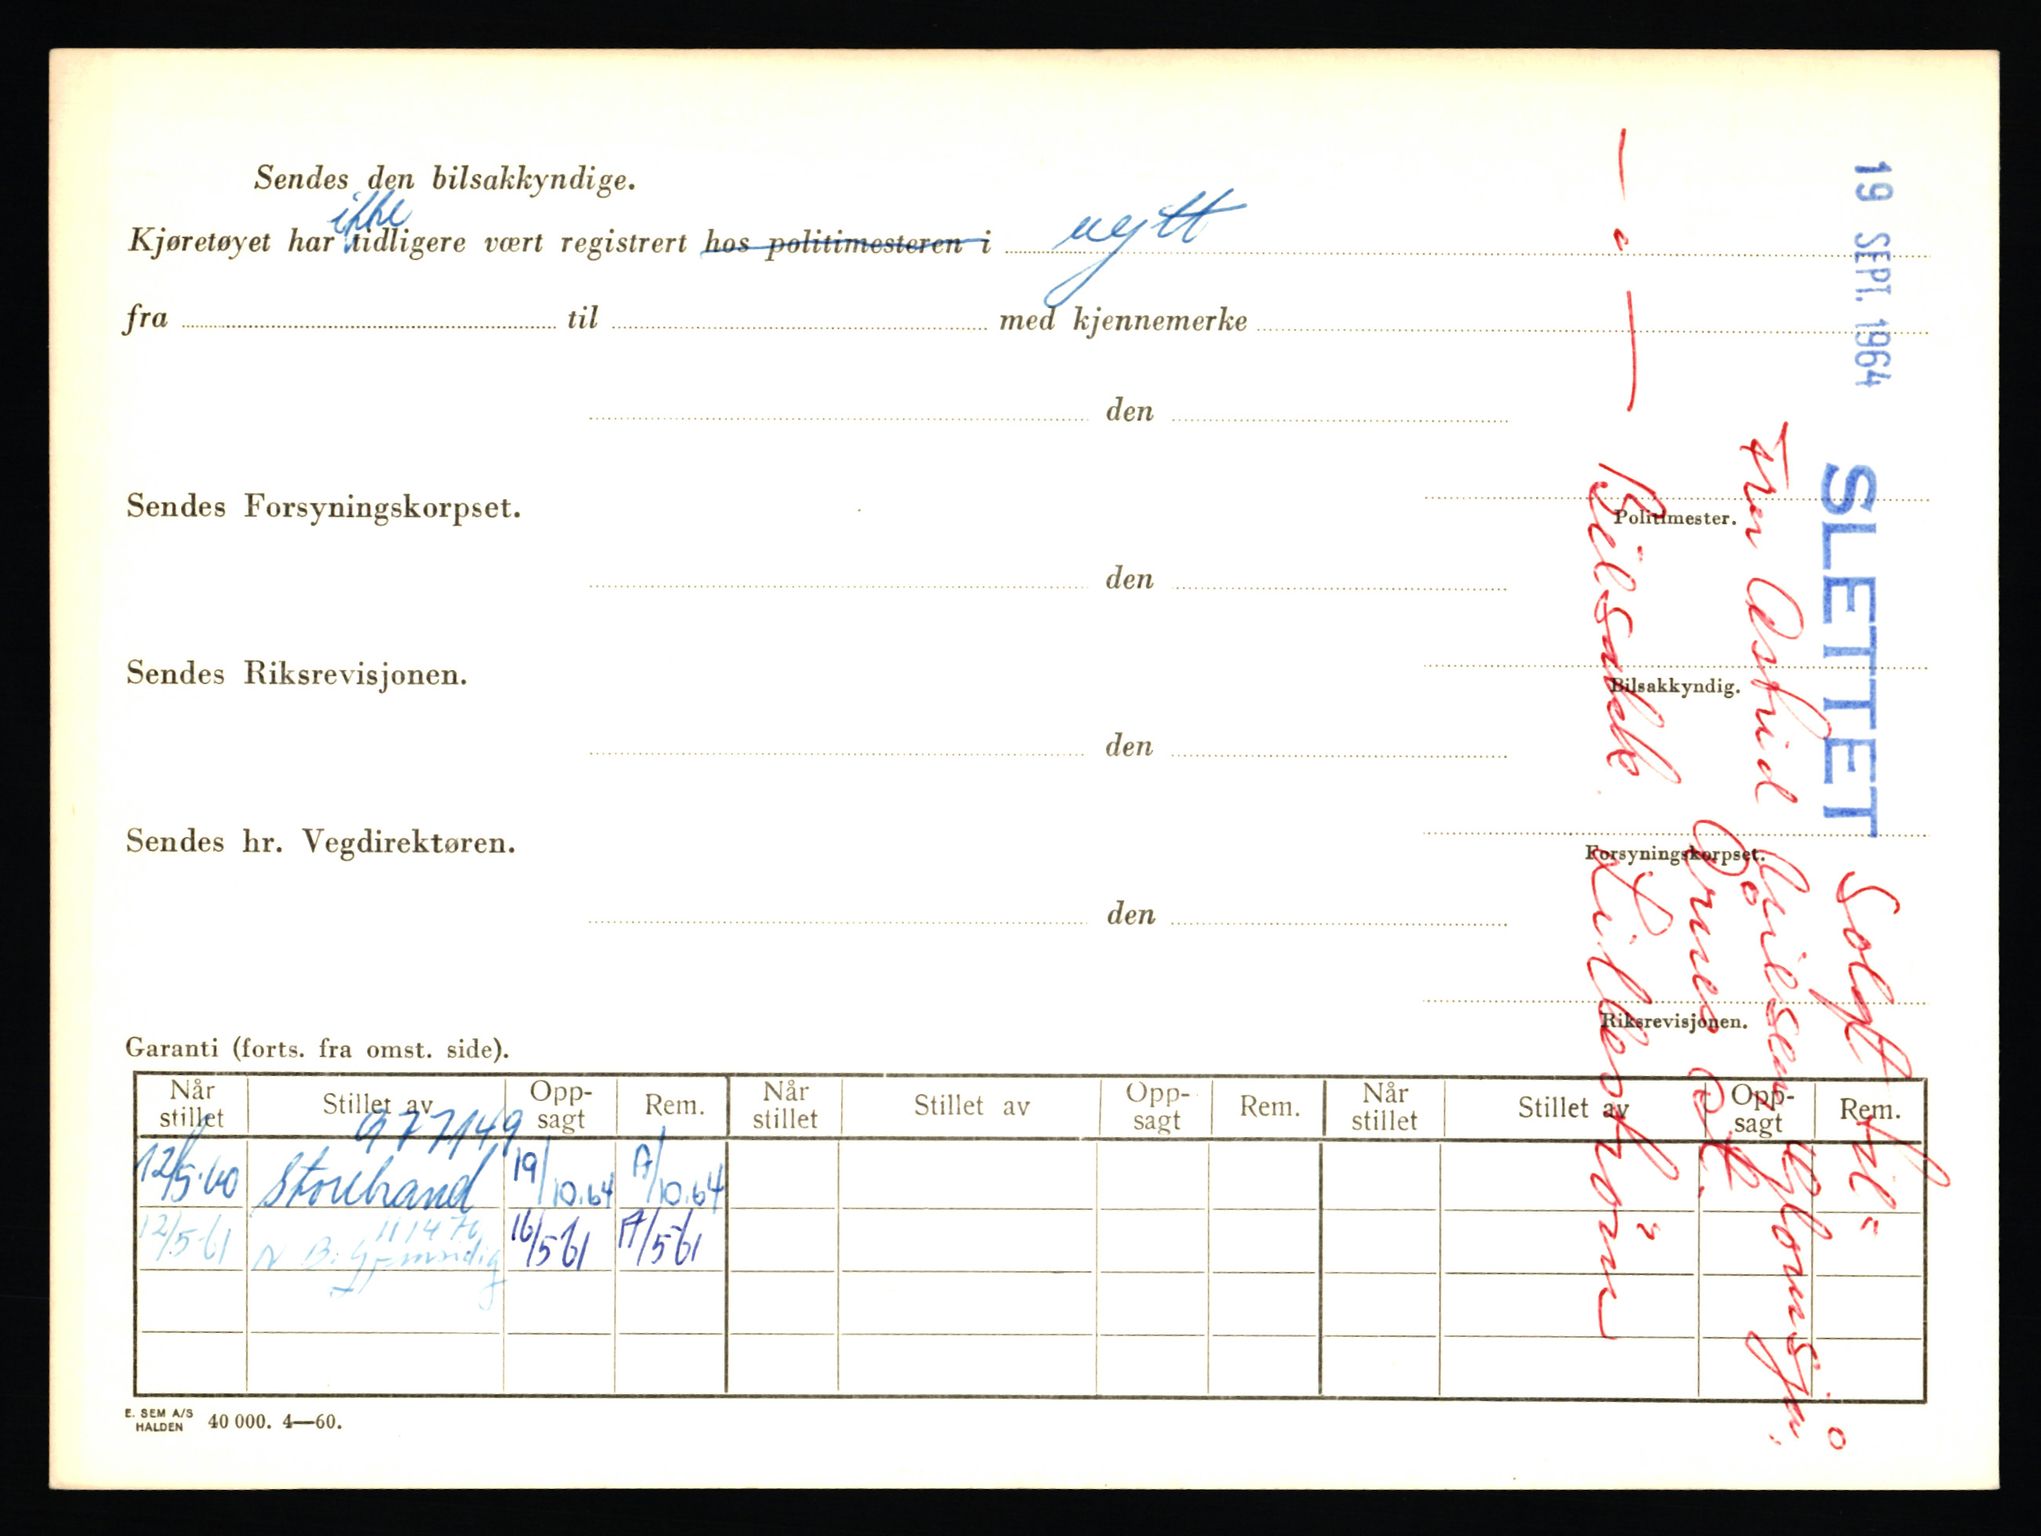 Sendes den bilsakkyndige.
ikke
Kjøretøyet har tidligere vært registrert hos politimesteren i nytt
fra til med kjennemerke
den
Politimester.
Sendes Forsyningskorpset.
den
Bilsakkyndig.
Sendes Riksrevisjonen.
den
Forsyningskorpset.
Sendes hr. Vegdirektøren.
den
Riksrevisjonen.
Garanti (forts. fra omst. side).
Når stillet Stillet av Opp- sagt Rem. Når stillet Stillet av Opp- sagt Rem. Når stillet Stillet av Opp- sagt Rem.
977149
12/5.60 Storebrand 19/10.64 A/10.64
111476
12/5-61 N B. Gjensidig 16/5-61 A/5-61
E. SEM A/S
HALDEN 40 000. 4—60.
19 SEPT. 1964
SLETTET
Solgt til
Fru Astrid
Bilsakk. Lillestrøm